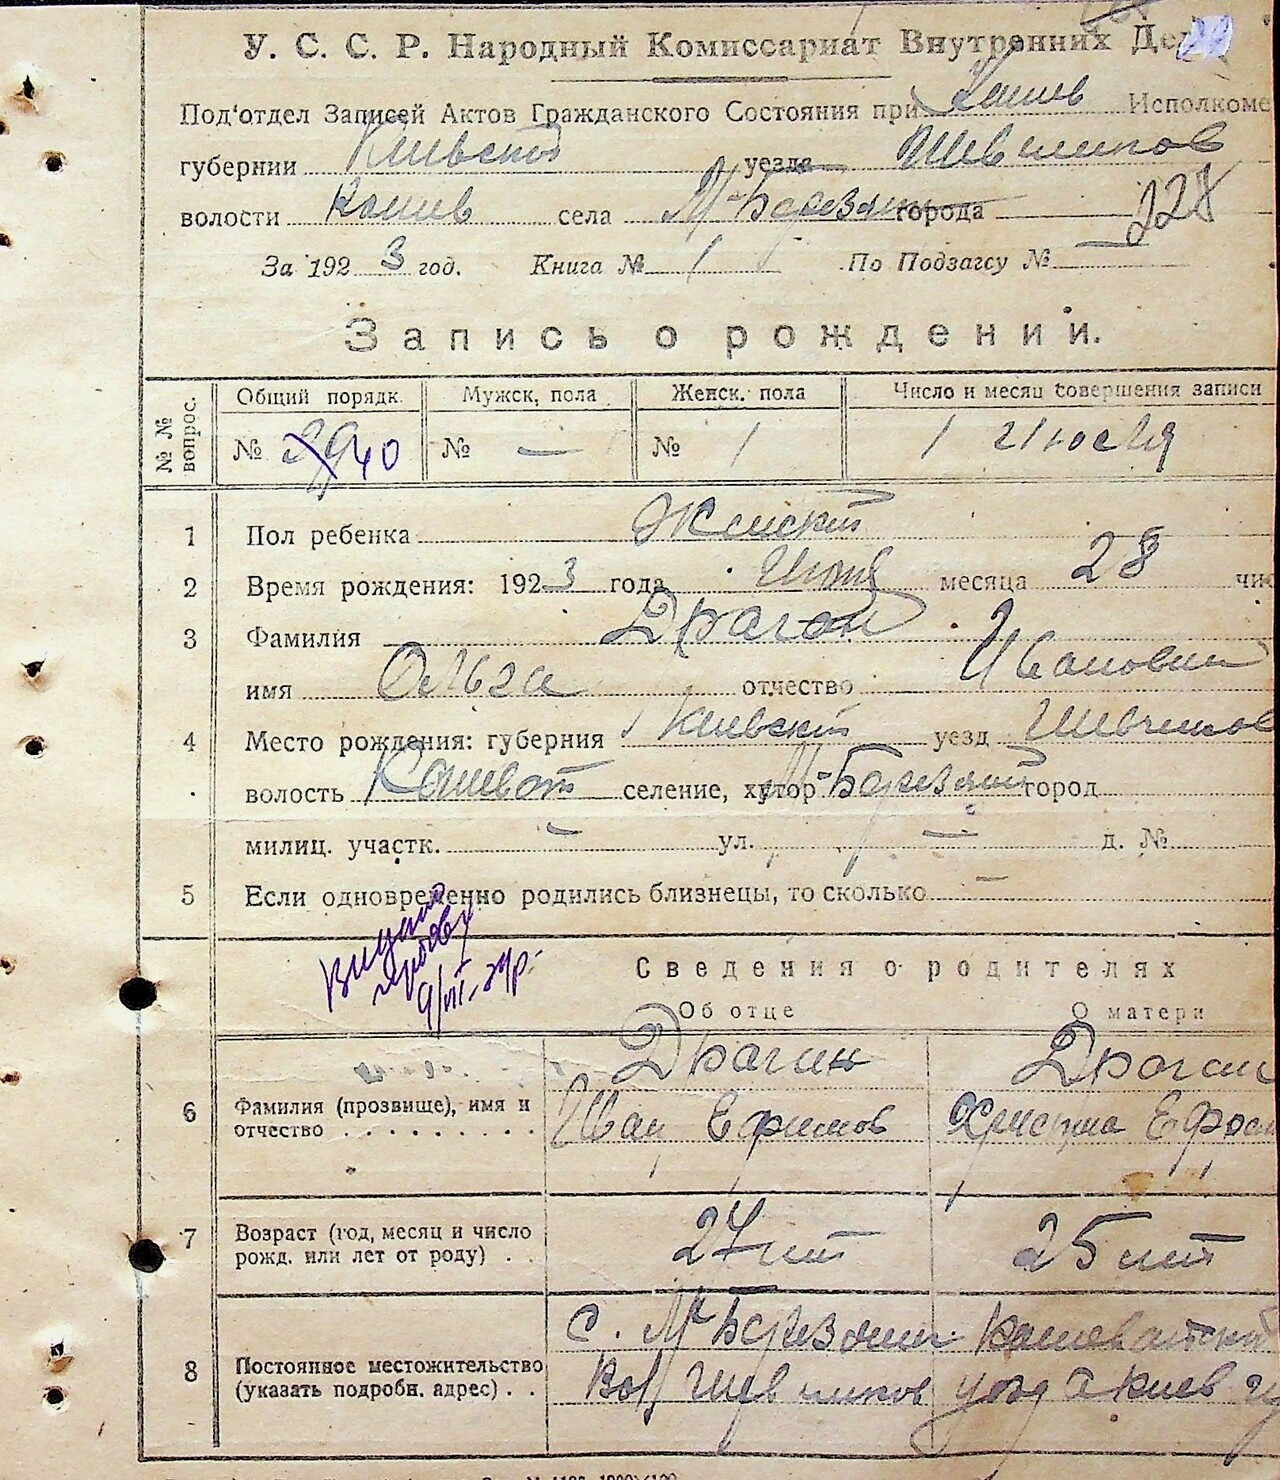 У. С. С. Р. Народный Комиссариат Внутренних Дел
Под'отдел Записей Актов Гражданского Состояния при Кашев Исполкоме
губернии Киевской уезда Шевченков
волости Кашев села М-Березян города 228
За 1923 год. Книга № 1 По Подзагсу № —
Запись о рождении.
№№ вопрос. Общий порядк. Мужск. пола Женск. пола Число и месяц совершения записи
№ 39 40 № — № 1 1 июля
1 Пол ребенка Женский
2 Время рождения: 1923 года месяца 28 чис
3 Фамилия Драган
имя Ольга отчество Ивановна
4 Место рождения: губерния Киевской уезд Шевченков
волость Кашеват селение, хутор М-Березян город
милиц. участк. — ул. — д. №
5 Если одновременно родились близнецы, то сколько —
9/VII-29р.
Сведения о родителях
Об отце О матери
Драган Драган
6 Фамилия (прозвище), имя и отчество Иван Ефимов Христина Ефрем
7 Возраст (год, месяц и число рожд. или лет от роду) 27 лет 25 лет
с. М-Березян Кашеватской
8 Постоянное местожительство (указать подробн. адрес) Вол Шевченков уезда Киев гу